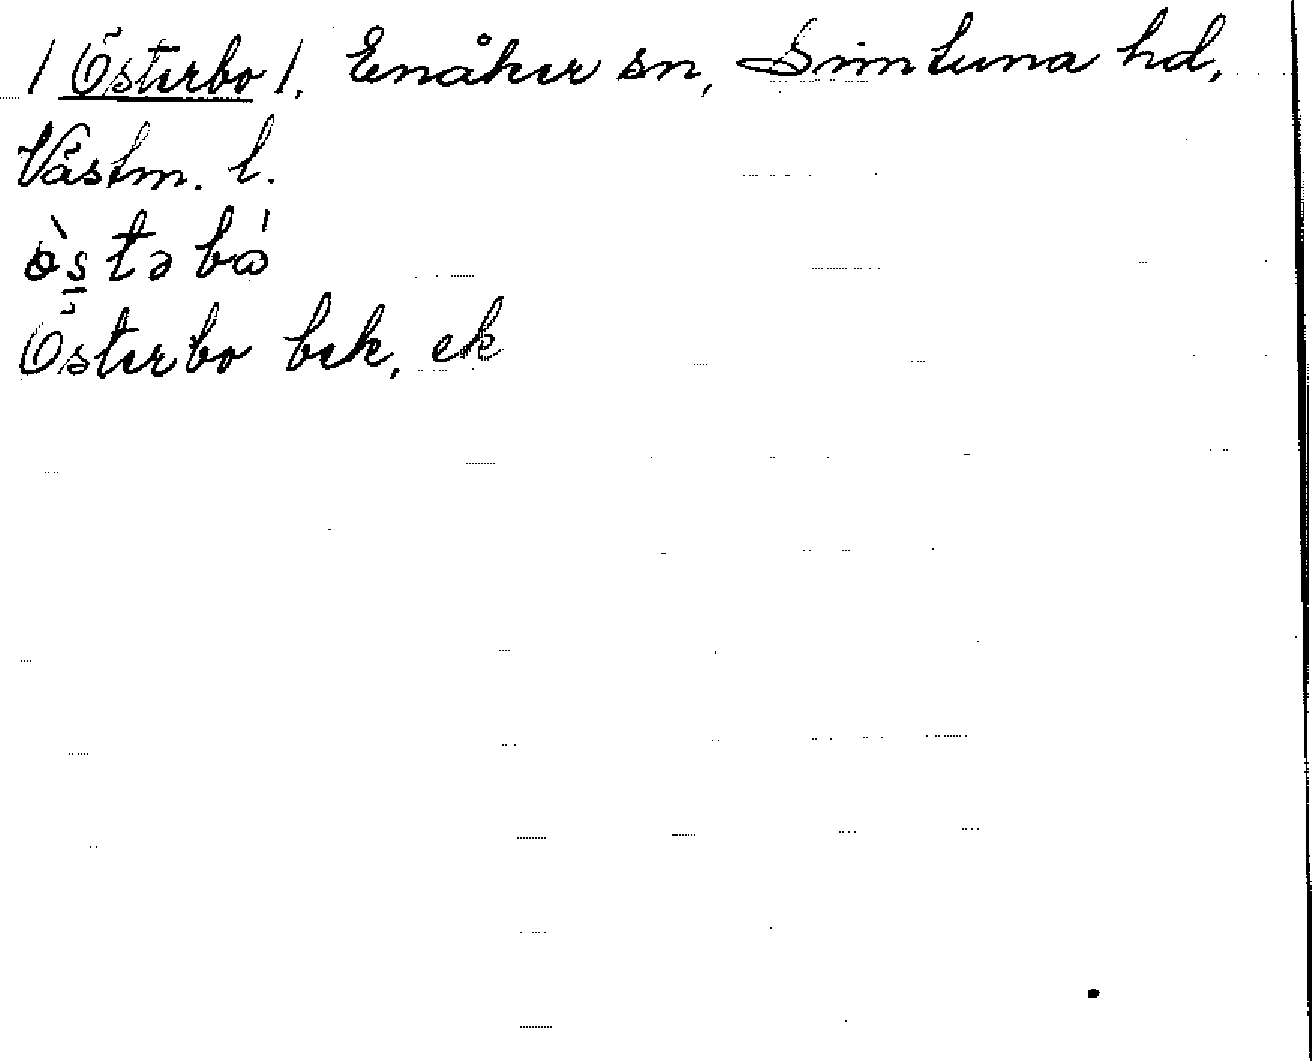 /Österbo/, Enåker sn, Simtuna hd,
Västm. l.
ö̀s̠təbɷ́
Österbo bek, ek